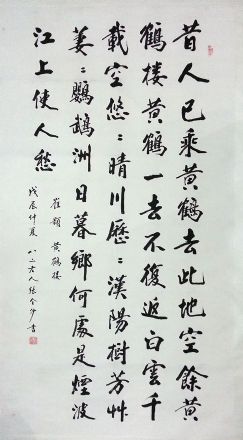 昔人已乘黃鶴去此地空餘黃
鶴樓黃鶴一去不復返白雲千
載空悠〻晴川歷〻漢陽樹芳艸
萋〻鸚鵡洲日暮鄉何處是煙波
江上使人愁
崔顥 黃鶴樓
戊辰仲夏 八二老人 書